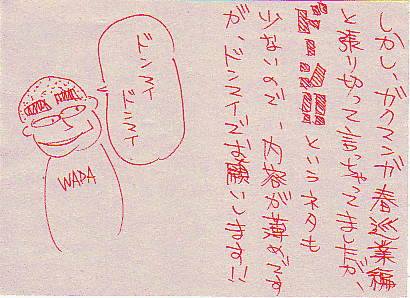 しかし、ガクマンガ春巡業編
と張り切って言っちゃってましたが、
というネタも
少ないので、内容が薄いです
が、ドンマイでお願いします!!
ドンマイ
ドンマイ
WADA